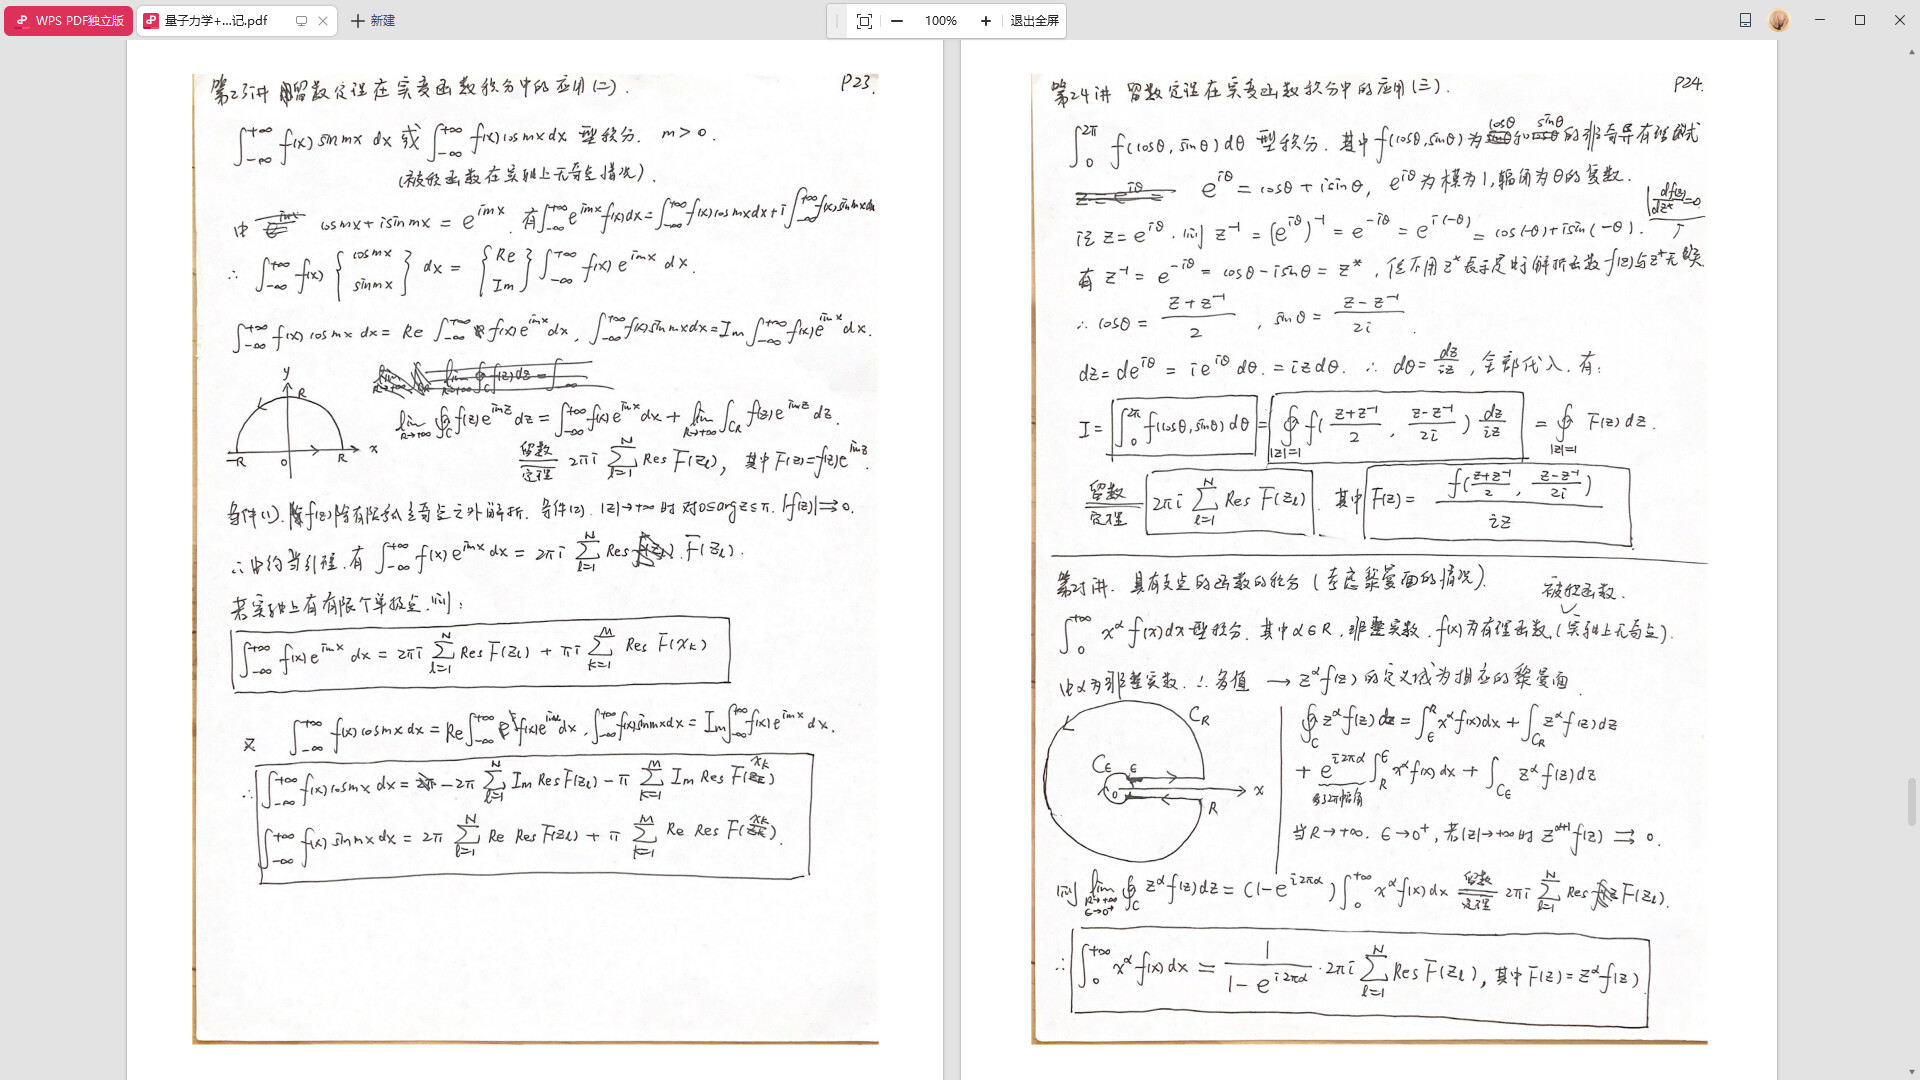 WPS PDF独立版
量子力学+...记.pdf
新建
100%
退出全屏
第23讲 留数定理在实变函数积分中的应用(二). P23.
∫_{-∞}^{+∞} f(x) sin mx dx 或 ∫_{-∞}^{+∞} f(x) cos mx dx 型积分. m>0.
(被积函数在实轴上无奇点情况).
由 cos mx + i sin mx = e^{imx}. 有 ∫_{-∞}^{+∞} e^{imx} f(x) dx = ∫_{-∞}^{+∞} f(x) cos mx dx + i ∫_{-∞}^{+∞} f(x) sin mx dx
∴ ∫_{-∞}^{+∞} f(x) { cos mx / sin mx } dx = { Re / Im } ∫_{-∞}^{+∞} f(x) e^{imx} dx.
∫_{-∞}^{+∞} f(x) cos mx dx = Re ∫_{-∞}^{+∞} f(x) e^{imx} dx, ∫_{-∞}^{+∞} f(x) sin mx dx = Im ∫_{-∞}^{+∞} f(x) e^{imx} dx.
y R -R 0 R x
lim_{R→+∞} ∮_C f(z) e^{imz} dz = ∫_{-∞}^{+∞} f(x) e^{imx} dx + lim_{R→+∞} ∫_{C_R} f(z) e^{imz} dz.
留数定理 2πi ∑_{l=1}^{N} Res F(z_l), 其中 F(z) = f(z) e^{imz}.
条件(1). f(z)除有限孤立奇点之外解析. 条件(2). |z|→+∞时 对 0≤arg z≤π. |f(z)|⇉0.
∴由约当引理. 有 ∫_{-∞}^{+∞} f(x) e^{imx} dx = 2πi ∑_{l=1}^{N} Res F(z_l).
若实轴上有有限个单极点. 则:
∫_{-∞}^{+∞} f(x) e^{imx} dx = 2πi ∑_{l=1}^{N} Res F(z_l) + πi ∑_{k=1}^{M} Res F(x_k)
又 ∫_{-∞}^{+∞} f(x) cos mx dx = Re ∫_{-∞}^{+∞} f(x) e^{imx} dx, ∫_{-∞}^{+∞} f(x) sin mx dx = Im ∫_{-∞}^{+∞} f(x) e^{imx} dx.
∴ ∫_{-∞}^{+∞} f(x) cos mx dx = -2π ∑_{l=1}^{N} Im Res F(z_l) - π ∑_{k=1}^{M} Im Res F(x_k)
∫_{-∞}^{+∞} f(x) sin mx dx = 2π ∑_{l=1}^{N} Re Res F(z_l) + π ∑_{k=1}^{M} Re Res F(x_k).
第24讲 留数定理在实变函数积分中的应用(三). P24.
∫_0^{2π} f(cosθ, sinθ) dθ 型积分. 其中 f(cosθ, sinθ) 为 cosθ 和 sinθ 的非奇异有理函式
e^{iθ} = cosθ + i sinθ, e^{iθ} 为模为1, 辐角为θ的复数.
df(z)/dz* = 0
设 z = e^{iθ}. 则 z^{-1} = (e^{iθ})^{-1} = e^{-iθ} = e^{i(-θ)} = cos(-θ) + i sin(-θ).
有 z^{-1} = e^{-iθ} = cosθ - i sinθ = z*, 但不用 z* 表示是由于解析函数 f(z) 与 z* 无关
∴ cosθ = (z+z^{-1})/2, sinθ = (z-z^{-1})/2i.
dz = de^{iθ} = ie^{iθ} dθ. = iz dθ. ∴ dθ = dz/iz, 全部代入. 有:
I = ∫_0^{2π} f(cosθ, sinθ) dθ = ∮_{|z|=1} f((z+z^{-1})/2, (z-z^{-1})/2i) dz/iz = ∮_{|z|=1} F(z) dz.
留数定理 2πi ∑_{l=1}^{N} Res F(z_l). 其中 F(z) = f((z+z^{-1})/2, (z-z^{-1})/2i) / iz
第25讲. 具有支点的函数的积分 (考虑黎曼面的情况).
被积函数.
∫_0^{+∞} x^α f(x) dx 型积分. 其中 α∈R, 非整实数. f(x)为有理函数, (实轴上无奇点).
由α为非整实数. ∴多值 → z^α f(z) 的定义域为相应的黎曼面.
C_R C_ε ε 0 R x
∮_C z^α f(z) dz = ∫_ε^R x^α f(x) dx + ∫_{C_R} z^α f(z) dz
+ e^{i2πα} ∫_R^ε x^α f(x) dx + ∫_{C_ε} z^α f(z) dz
当 R→+∞. ε→0⁺, 若|z|→+∞时 z^{α+1} f(z) ⇉ 0.
则 lim_{R→+∞ ε→0⁺} ∮_C z^α f(z) dz = (1-e^{i2πα}) ∫_0^{+∞} x^α f(x) dx 留数定理 2πi ∑_{l=1}^{N} Res F(z_l).
∴ ∫_0^{+∞} x^α f(x) dx = 1/(1-e^{i2πα}) · 2πi ∑_{l=1}^{N} Res F(z_l), 其中 F(z) = z^α f(z)